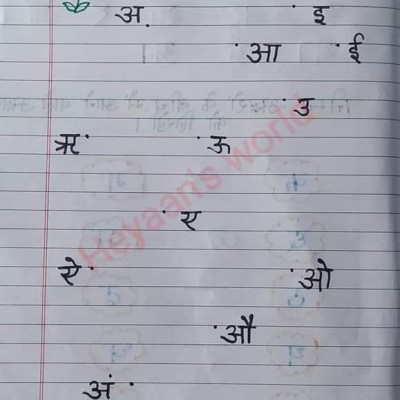 अ. · इ
· आ · ई
· उ
ऋ · · ऊ
· ए
ऐ · · ओ
· औ
अं ·
Heyaan's world